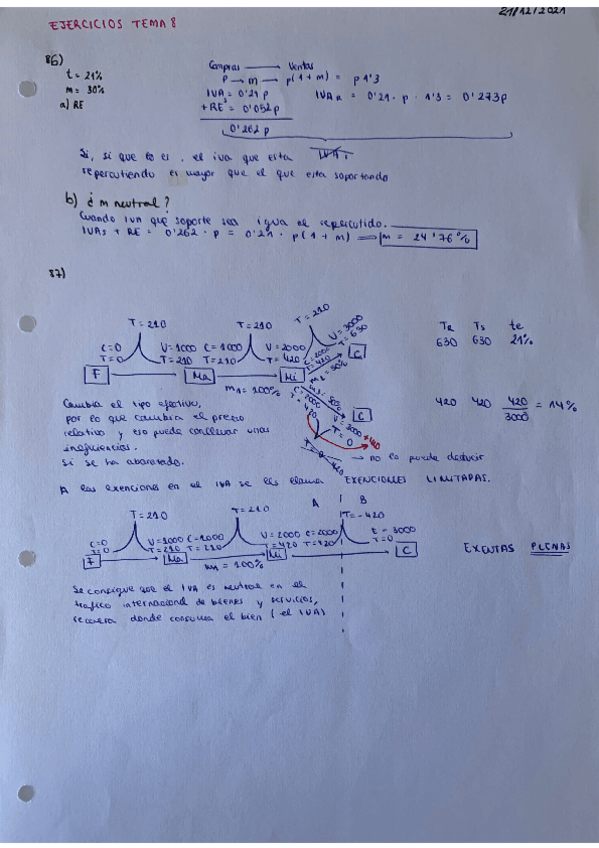 21/12/2021
EJERCICIOS TEMA 8
86)
t = 21%
m = 30%
a) RE
Compras → Ventas
p → m → p(1+m) = p 1'3
IVAs = 0'21 p
IVAR = 0'21 · p · 1'3 = 0'273p
+RE = 0'052 p
0'262 p
Si, sí que lo es, el iva que esta
repercutiendo es mayor que el que esta soportando
b) ¿m neutral?
Cuando IVA que soporte sea igual al repercutido.
IVAs + RE = 0'262 · p = 0'21 · p(1+m) ⟹ m = 24'76%
87)
T=210 T=210 T=210
C=0 V=1000 C=1000 V=2000 C=2000 V=3000
T=0 T=210 T=210 T=420 T=420 T=630
F → Ma → Mi → C
m1 = 100% m2 = 50%
TR TS te
630 630 21%
m2 = 50%
C=2000 V=3000
T=420 T=0
+420
C
T=0
420
420 420 420/3000 = 14%
Cambia el tipo efectivo,
por lo que cambiara el precio
relativo y eso puede conllevar unas
ineficiencias.
Si se ha abaratado.
→ no lo puede deducir
A las exenciones en el IVA se les llama EXENCIONES LIMITADAS.
A B
T=210 T=210 T=-420
C=0 V=1000 C=1000 V=2000 C=2000 t=3000
T=0 T=210 T=210 T=420 T=420 T=0
F → Ma → Mi → C
m1 = 100%
EXENTAS PLENAS
Se consigue que el IVA es neutral en el
trafico internacional de bienes y servicios,
recauda donde consuma el bien (el IVA)